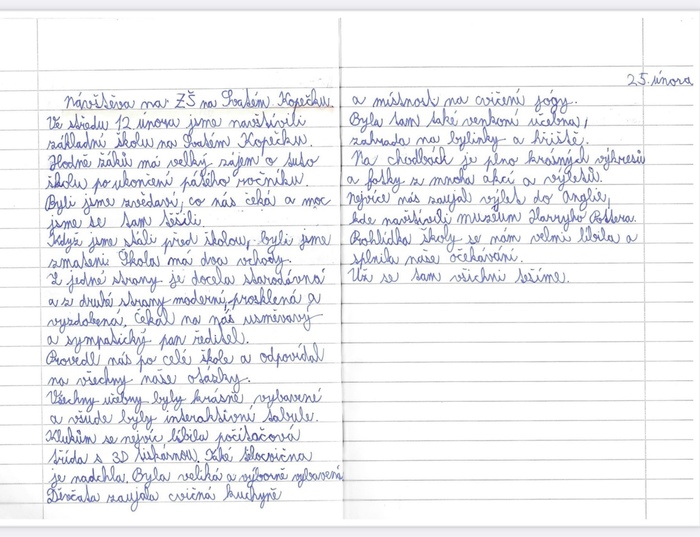 25. února
Návštěva na ZŠ na Svatém Kopečku.
Ve středu 12. února jsme navštívili
základní školu na Svatém Kopečku.
Hodně žáků má velký zájem o tuto
školu po ukončení pátého ročníku.
Byli jsme zvědaví, co nás čeká a moc
jsme se tam těšili.
Když jsme stáli před školou, byli jsme
zmateni. Škola má dva vchody.
Z jedné strany je docela starodávná
a z druhé strany moderní, prosklená a
vyzdobená. Čekal na nás usměvavý
a sympatický pan ředitel.
Provedl nás po celé škole a odpovídal
na všechny naše otázky.
Všechny učebny byly krásně vybavené
a všude byly interaktivní tabule.
Klukům se nejvíc líbila počítačová
třída s 3D tiskárnou. Také tělocvična
je nadchla. Byla veliká a výborně vybavená.
Děvčata zaujala cvičná kuchyně
a místnost na cvičení jógy.
Byla tam také venkovní učebna,
zahrada na bylinky a hřiště.
Na chodbách je plno krásných výkresů
a fotky z mnoha akcí a výletů.
Nejvíce nás zaujal výlet do Anglie,
kde navštívili muzeum Harryho Pottera.
Prohlídka školy se nám velmi líbila a
splnila naše očekávání.
Už se tam všichni těšíme.